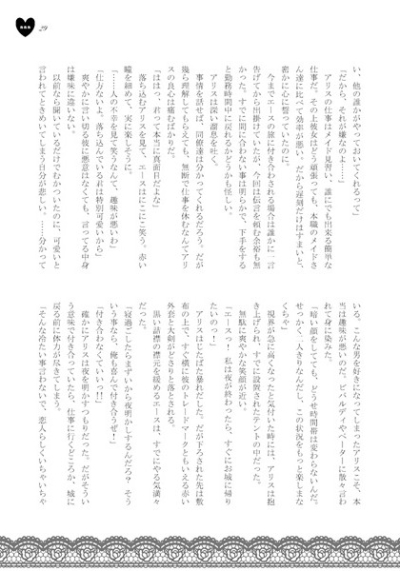 29
い、他の誰かがやっておいてくれるって」
「だから、それが嫌なのよ……」
アリスの仕事はメイド見習い、誰にでも出来る簡単な
仕事だ。その上彼女はどう頑張っても、本職のメイドさ
ん達に比べて効率が悪い。だから遅刻だけはすまいと、
密かに心に誓っていたのに。
今までエースの旅に付き合わされる場合は誰かに一言
告げてから出掛けていたが、今回は伝言を頼む余裕も無
かった。すでに間に合わない事は明らかで、下手をする
と勤務時間中に戻れるかどうかも怪しい。
アリスは深い溜息を吐く。
事情を話せば、同僚達は分かってくれるだろう。だが
幾ら理解してもらえても、無断で仕事を休むなんてアリ
スの良心は痛むばかりだ。
「ははっ、君って本当に真面目だよな」
落ち込むアリスを見て、エースはにこにこ笑う。赤い
瞳を細めて、実に楽しそうに。
「……人の不幸を見て笑うなんて、趣味が悪いわ」
「仕方ないよ。落ち込んでいる君は特別可愛いから」
爽やかに言い切る彼に悪意はなくても、言ってる中身
は嫌味に違いない。
以前なら聞いているだけでむかついたのに、可愛いと
言われてときめいてしまう自分が悲しい。……分かって
いる、こんな男を好きになってしまったアリスこそ、本
当は趣味が悪いのだ。ビバルディやペーターに散々言わ
れて身に染みた。
「暗い顔をしてても、どうせ時間帯は変わらないんだ。
せっかく二人きりなんだし、この状況をもっと楽しまな
くちゃ」
視界が急に高くなったと気付いた時には、アリスは抱
き上げられ、すでに設置されたテントの中だった。
無駄に爽やかな笑顔が近い。
「エースっ！　私は夜が終わったら、すぐにお城に帰り
たいのっ！」
アリスはじたばた暴れだした。だが下ろされた先は敷
布の上で、すぐ横に彼のトレードマークともいえる赤い
外套と大剣がどさりと落とされる。
黒い詰襟の襟元を緩めるエースは、すでにやる気満々
だった。
「寝過ごしたらまずいから夜明かしするんだろ？　そう
いう事なら、俺も喜んで付き合うぜ！」
「付き合わなくていいっ!!」
確かにアリスは夜を明かすつもりだった。だがそうい
う意味で付き合っていたら、仕事に行くどころか、城に
戻る前に体力が尽きてしまう。
「そんな冷たい事言わないで、恋人らしくいちゃいちゃ